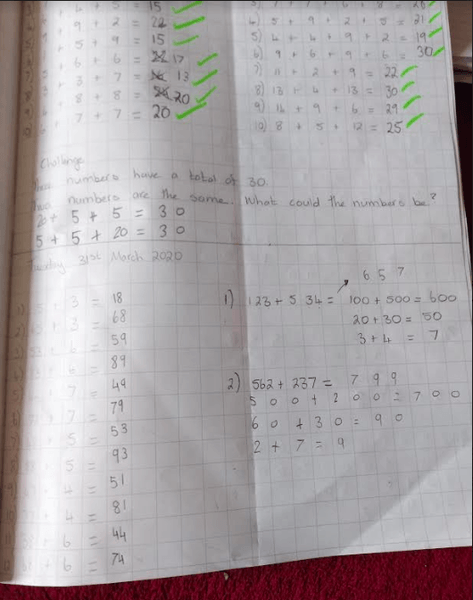 + 5 = 15
9 + 2 = 22
5 + 9 = 15
+ 6 + 6 = 17
+ 3 + 7 = 13
+ 8 + 8 = 20
7 + 7 = 20
4) 5 + 9 + 2 + 5 = 21
5) 4 + 4 + 9 + 2 = 19
6) 9 + 6 + 9 + 6 = 30
7) 11 + 2 + 9 = 22
8) 13 + 4 + 13 = 30
9) 14 + 9 + 6 = 29
10) 8 + 5 + 12 = 25
Challenge
numbers have a total of 30.
Two numbers are the same. What could the numbers be?
20 + 5 + 5 = 30
5 + 5 + 20 = 30
Tuesday 31st March 2020
+ 3 = 18
+ 3 = 68
+ 6 = 59
+ 4 = 89
+ 7 = 49
+ 7 = 79
+ 5 = 53
5 = 93
4 = 51
+ 4 = 81
+ 6 = 44
+ 6 = 74
657
1) 123 + 534 = 100 + 500 = 600
20 + 30 = 50
3 + 4 = 7
2) 562 + 237 = 799
500 + 200 = 700
60 + 30 = 90
2 + 7 = 9